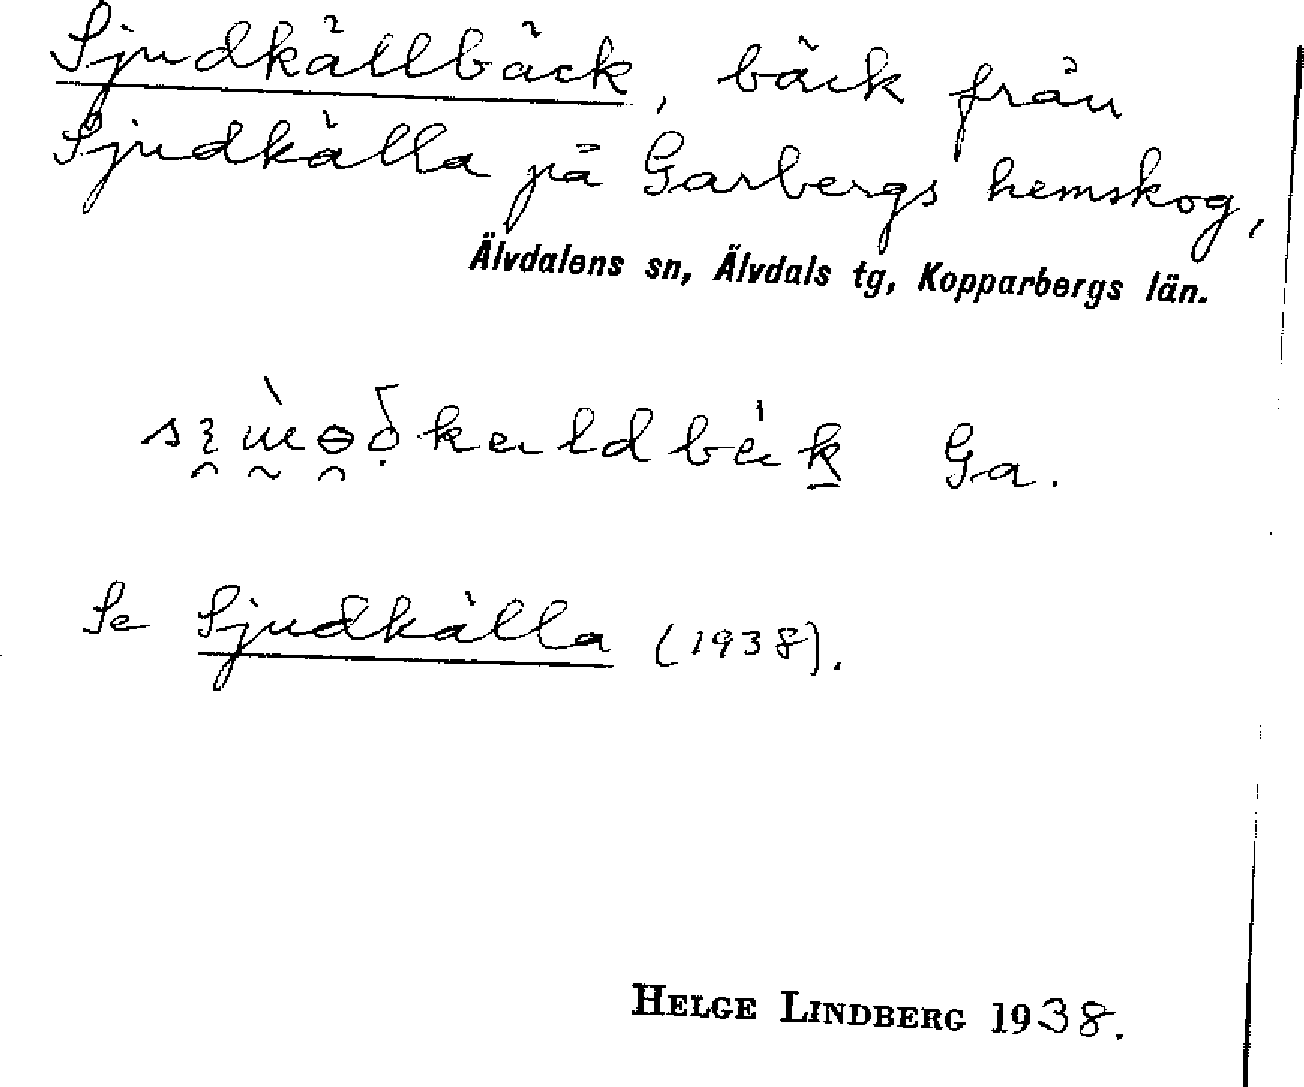 Sjudkällbäck, bäck från
Sjudkälla på Garbergs hemskog,
Älvdalens sn, Älvdals tg, Kopparbergs län.
Ga.
Se Sjudkälla (1938).
HELGE LINDBERG 1938.